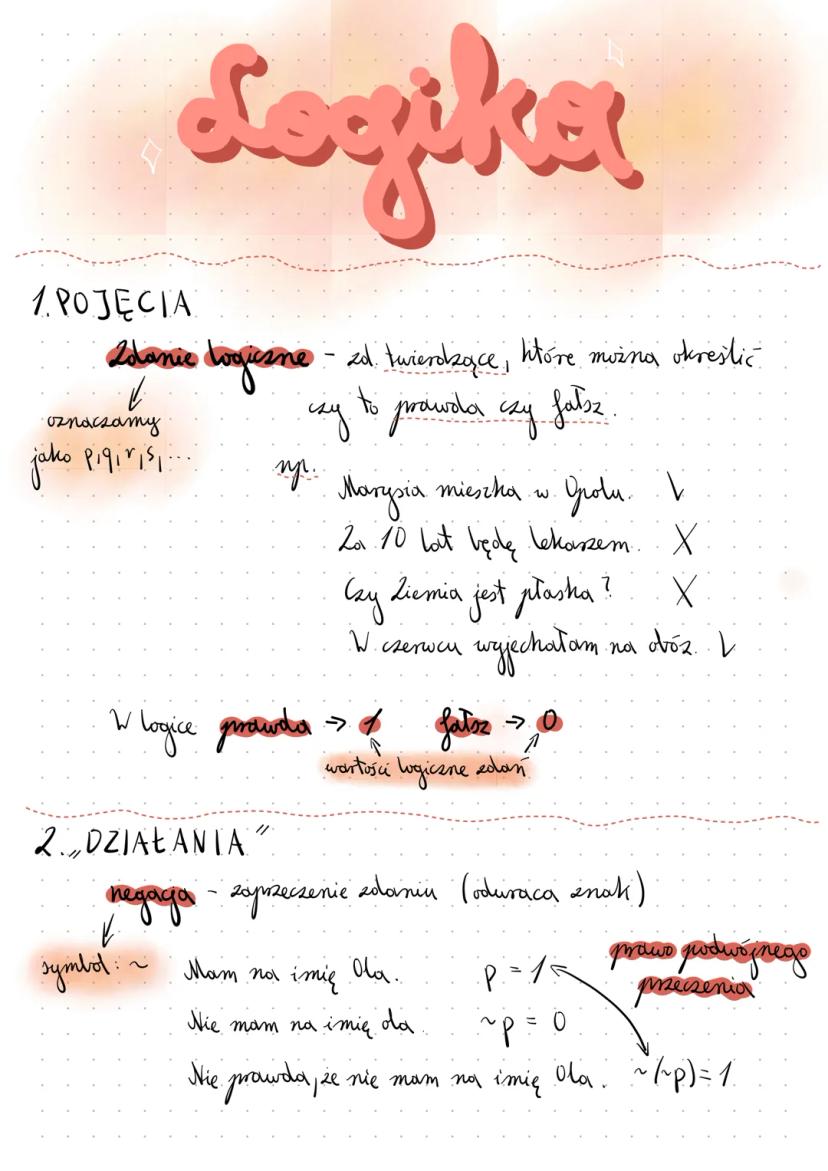 Logika
1. POJĘCIA
Zdanie logiczne - zd. twierdzące, które można określić
czy to prawda czy fałsz.
oznaczamy
jako p,q,r,s,...
np.
Marysia mieszka w Opolu. V
Za 10 lat będę lekarzem. X
Czy Ziemia jest płaska? X
W czerwcu wyjechałam na obóz. V
W logice prawda → 1 fałsz → 0
wartości logiczne zdań
2. „DZIAŁANIA"
negacja - zaprzeczenie zdaniu (odwraca znak)
symbol: ~
prawo podwójnego
przeczenia
Mam na imię Ola. p = 1
Nie mam na imię ola. ~p = 0
Nie prawda, że nie mam na imię Ola. ~(~p) = 1